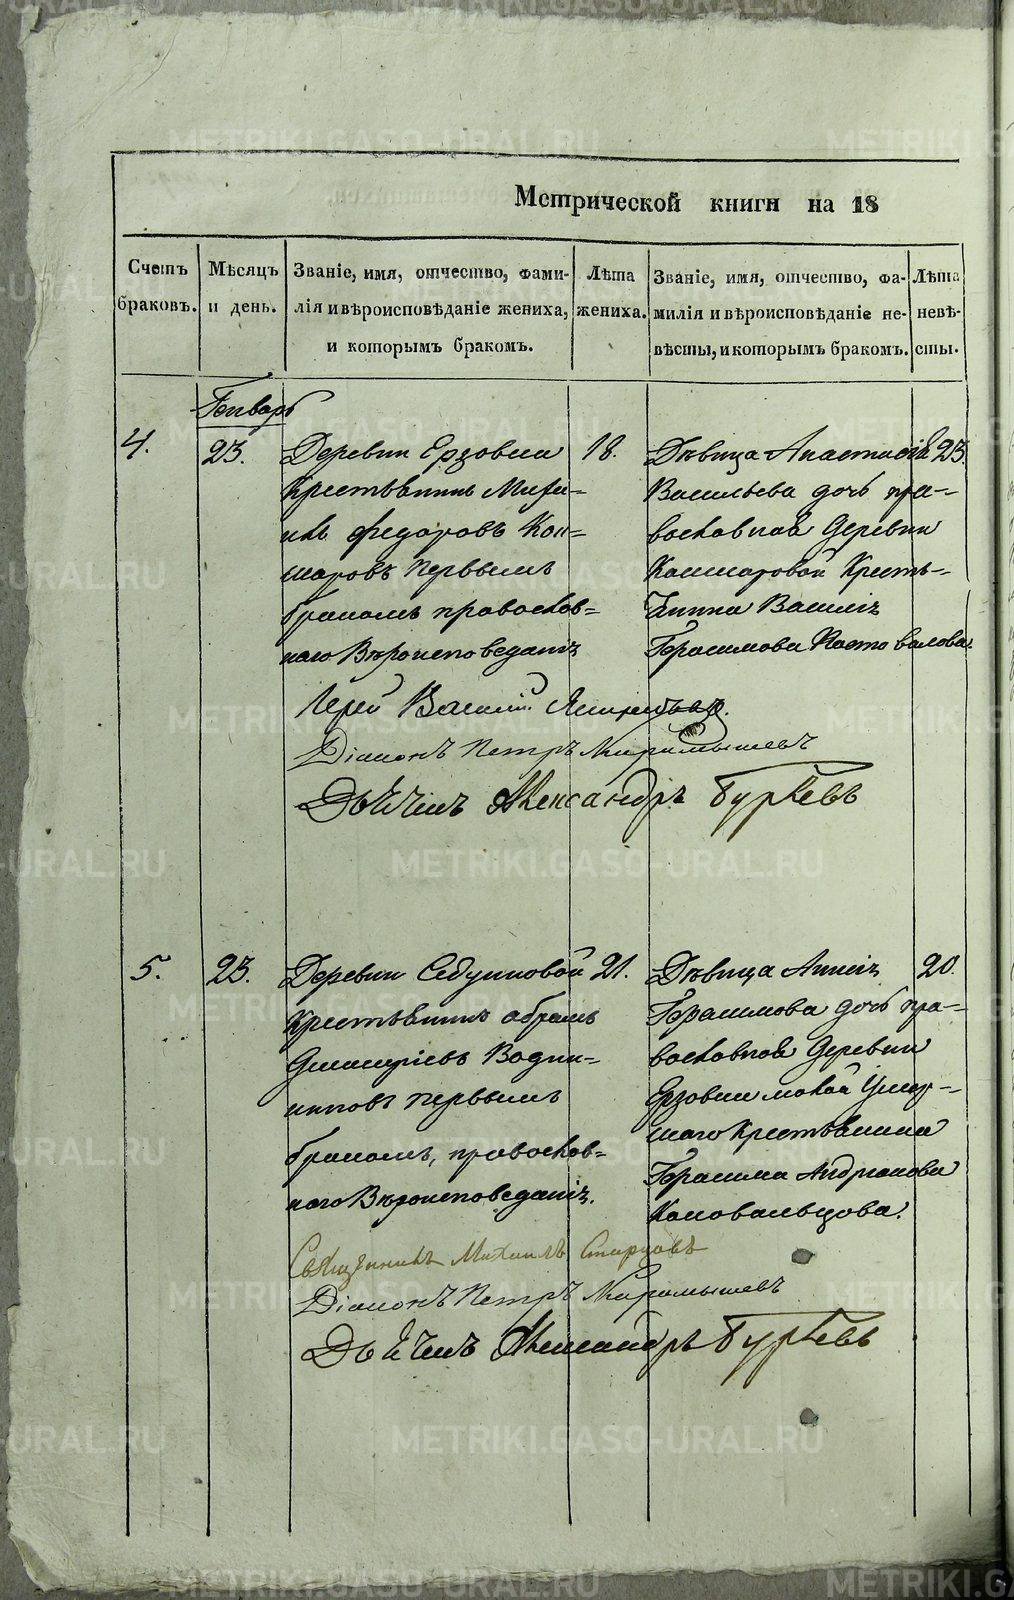 Метрической книги на 18
Счетъ браковъ.
Мѣсяцъ и день.
Званіе, имя, отчество, фами-
лія и вѣроисповѣданіе жениха,
и которымъ бракомъ.
Лѣта жениха.
Званіе, имя, отчество, фа-
милія и вѣроисповѣданіе не-
вѣсты, и которымъ бракомъ.
Лѣта невѣ-
сты.
Генварь
4.
23.
Деревни Ерзовки
Крестьянинъ
Федоровъ Кок-
шаровъ первымъ
бракомъ православ-
наго Вѣроисповеданія
18.
Дѣвица Анастасія
Васильева дочь пра-
вославная Деревни
Кокшаровой Кресть-
янина Василія
Герасимова
23.
Іерей Василій
Діаконъ Петръ Карамышевъ
Дьячекъ Александръ Гурьевъ
5.
23.
Деревни
Крестьянинъ абрамъ
Дмитріевъ
первымъ
бракомъ, православ-
наго Вѣроисповеданія.
21.
Дѣвица
Герасимова дочь пра-
вославная Деревни
Умер-
шаго Крестьянина
Герасима Андріанова
Коновальцова.
20.
Священникъ Михаилъ Старцовъ
Діаконъ Петръ Карамышевъ
Дьячекъ Александръ Гурьевъ
METRIKI.GASO-URAL.RU